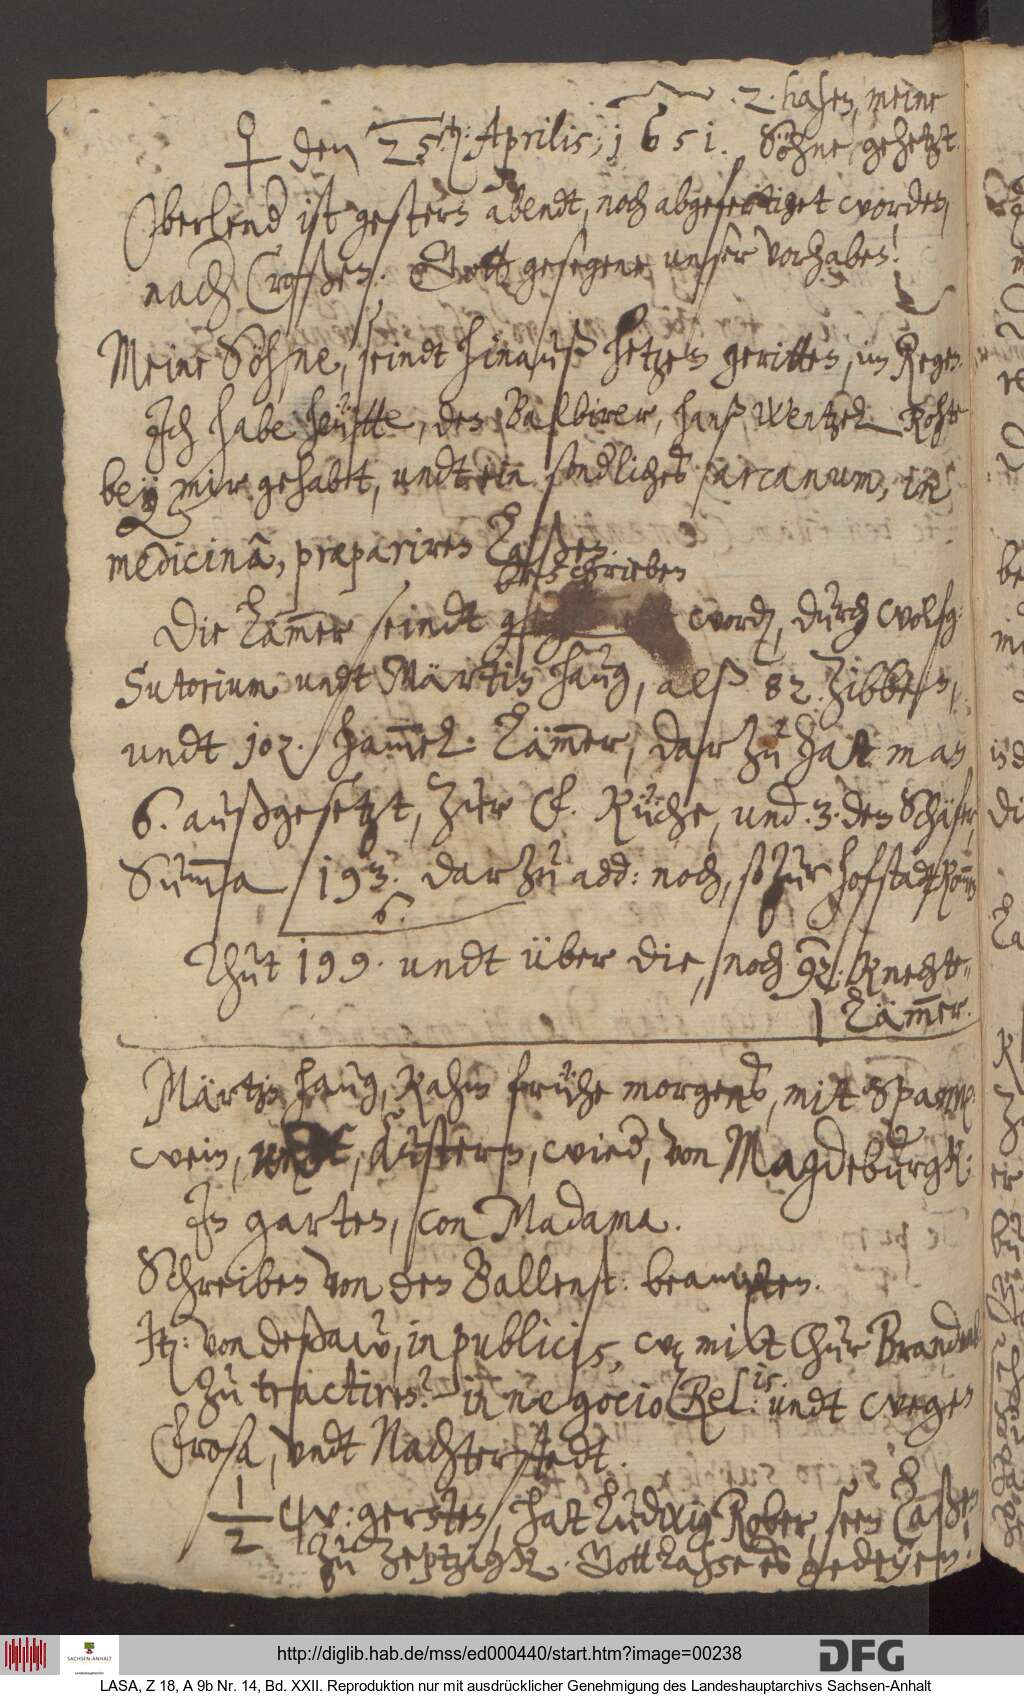 ♀ den 25.ten: Aprilis; 1651. . 2. hasen, meine
Söhne, gehetzt.
Oberlender ist gestern abendt, noch abgefertiget worden,
nach Croßen. Gott gesegene unser vorhaben!
Meine Söhne, seindt hinauß hetzen geritten, im Regen.
Ich habe heütte, den Balbirer, Hanß Wentzel Rohr
bey mir gehabtt, undt ein sonderliches arcanum, in
medicina, præpariren laßen.
beschrieben
Die Lämmer seindt word, durch Wolfg:
Sutorium undt Märtin Haug, alß 82. Zibben,
undt 102. hammel: Lämmer, darzu hat man
6. außgesetzt, zur Küche, und .3. den Schäfer,
Summa 193. darzu add: noch, so zur hofstadt kommen
6.
Thut 199. undt über die, noch 92. Knechte-
Lämmer.
Märtin Haug, Kahm frühe morgens, mit
wein, undt Austern, wied, von Magdeburgk:
In garten, con Madama.
Schreiben von den Ballenst: beampten.
It: von deßaw, in publicis, mit Chur Brand
zu tractiren? in negocio Rel:is undt wegen
Erosa, undt Nachterstedt.
1/2 W: gersten, hat Ludwig Röber, seen laßen
zu Zeptzigk. Gott lasse es gedeyen!
http://diglib.hab.de/mss/ed000440/start.htm?image=00238
DFG
SACHSEN-ANHALT
LASA, Z 18, A 9b Nr. 14, Bd. XXII. Reproduktion nur mit ausdrücklicher Genehmigung des Landeshauptarchivs Sachsen-Anhalt